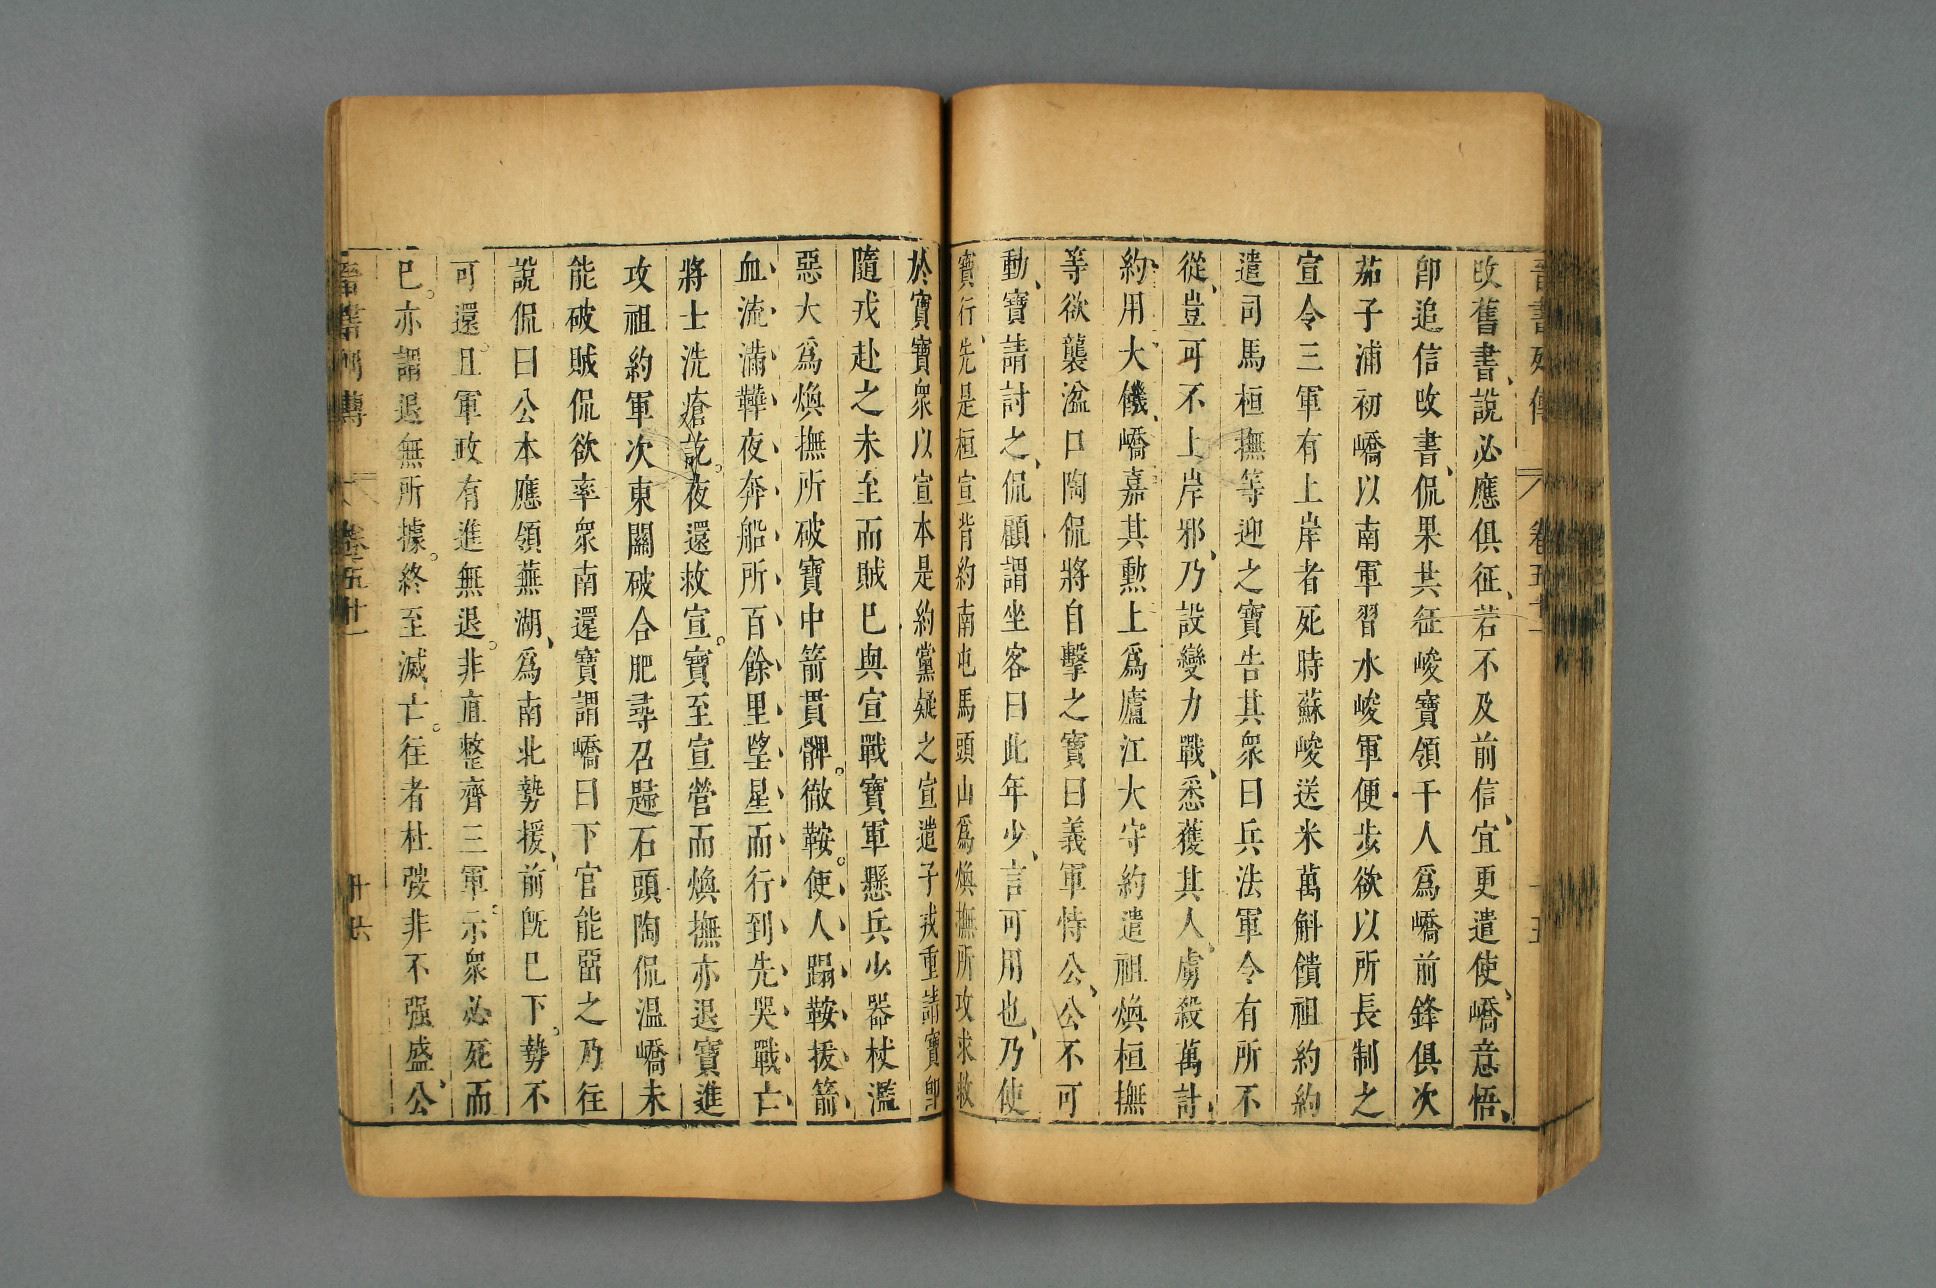 晉書列傳 卷五十一 十五
攺舊書、說必應俱征、若不及前信、宜更遣使、嶠意悟、
卽追信攺書、侃果共征峻寶領千人爲嶠前鋒俱次
茄子浦初嶠以南軍習水峻軍便步欲以所長制之
宣令三軍有上岸者死時蘇峻送米萬斛饋祖約約
遣司馬桓撫等迎之寶告其衆曰兵法軍令有所不
從、豈可不上岸邪、乃設變力戰、悉獲其人。虜殺萬計、
約用大饑、嶠嘉其勲上爲廬江大守約遣祖煥桓撫
等欲襲湓口陶侃將自擊之寶曰義軍恃公、公不可
動、寶請討之、侃顧謂坐客曰此年少、言可用也、乃使
寶行、先是桓宣背約南屯馬頭山爲煥撫所攻求救
於寶寶衆以宣本是約黨疑之宣遣子戎重請寶卽
隨戎赴之未至而賊巳與宣戰寶軍懸兵少器杖濫
惡大爲煥撫所破寶中箭貫髀。徹鞍。使人蹋鞍拔箭
血流滿鞾夜奔船所百餘里望星而行到先哭戰亡
將士洗瘡訖。夜還救宣。寶至宣營而煥撫亦退寶進
攻祖約軍次東關破合肥尋召歸石頭陶侃溫嶠未
能破賊侃欲率衆南還寶謂嶠曰下官能畱之乃往
說侃曰公本應領蕪湖、爲南北勢援、前旣巳下。勢不
可還。且軍政有進無退。非直整齊三軍。示衆必死而
巳。亦謂退無所據。終至滅亡。往者杜弢非不强盛、公
晉書列傳 卷五十一 十六